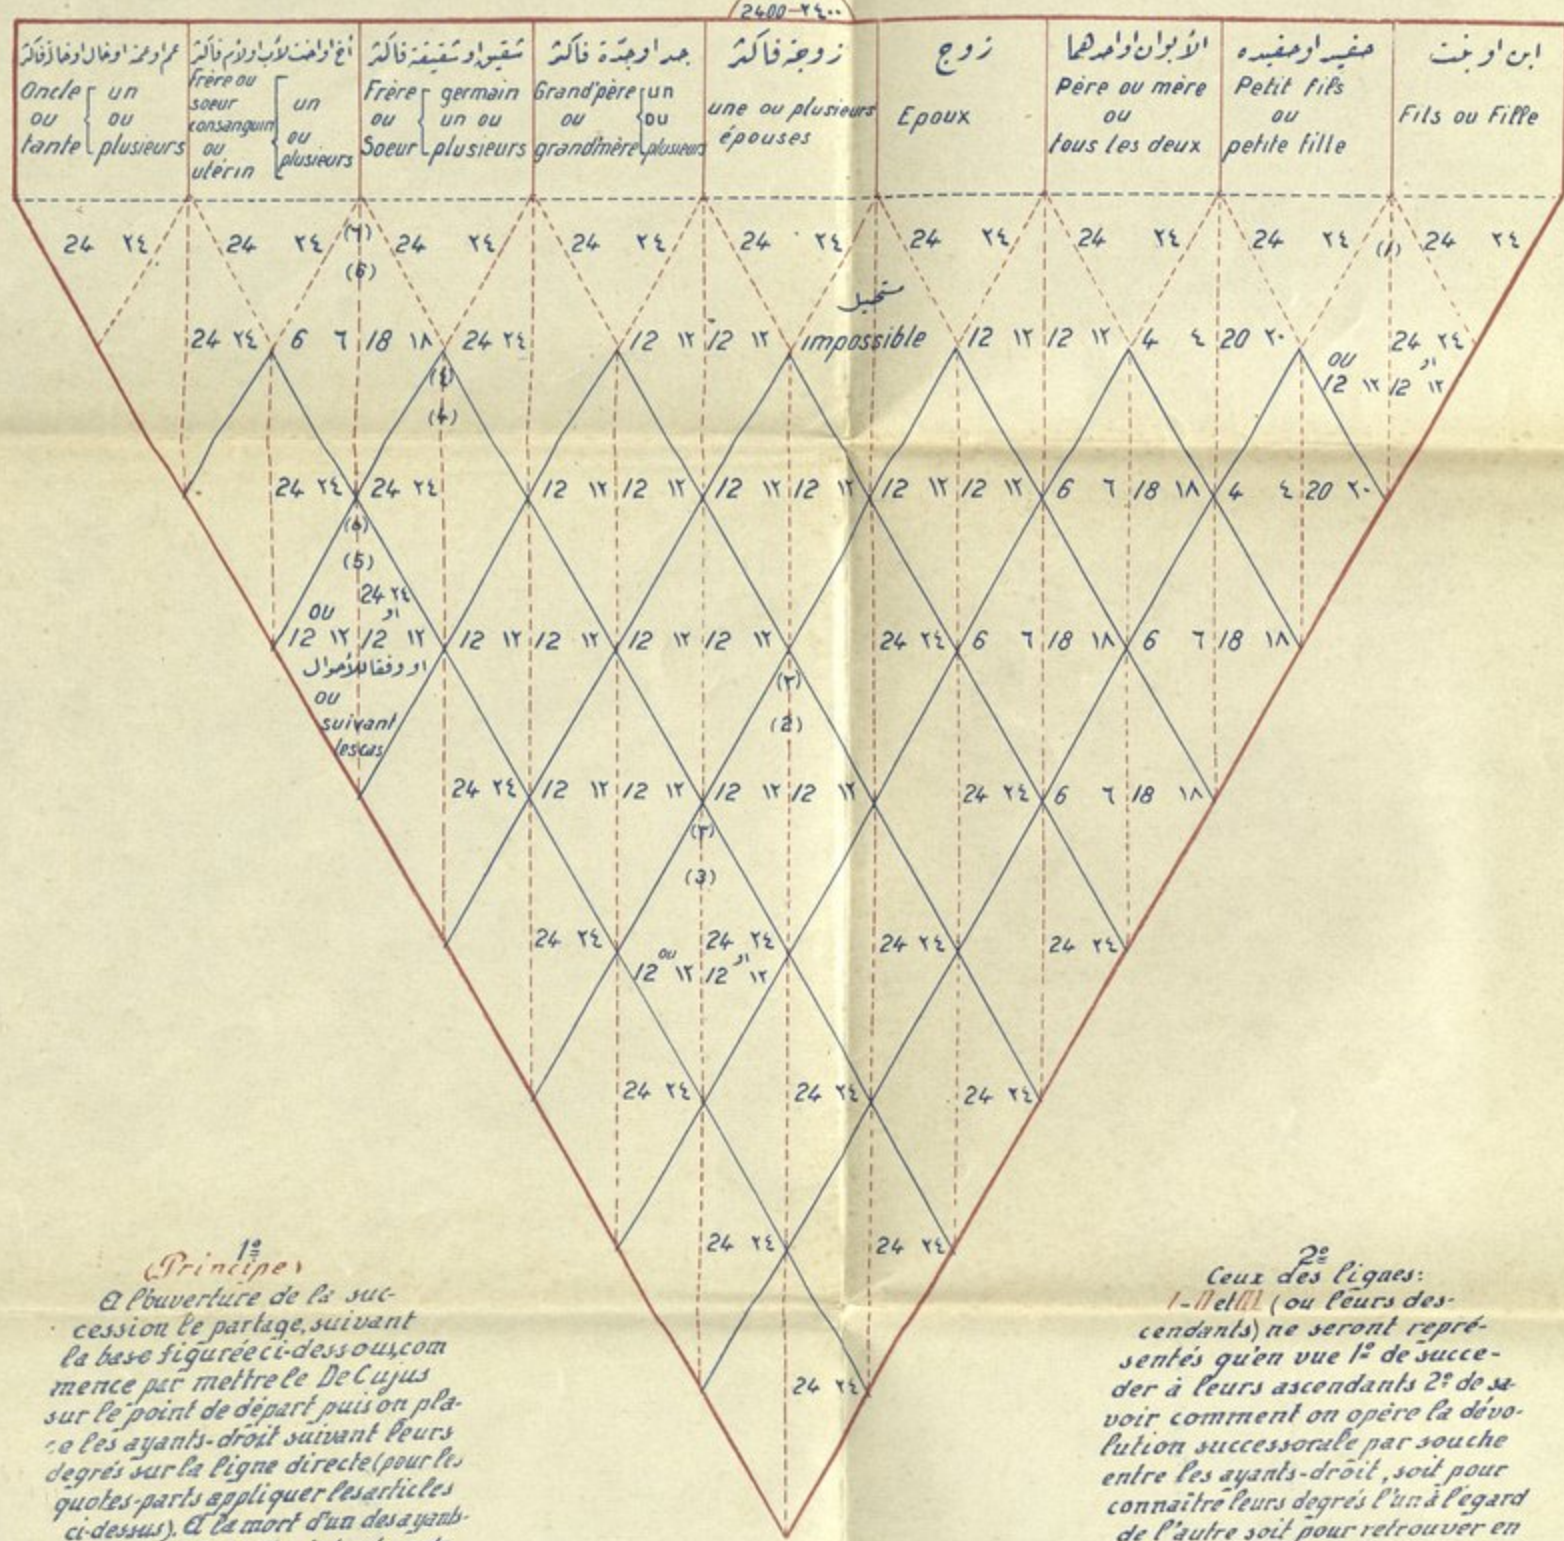 2400-٢٤٠٠
عم او عمة او خال او خالة فاكثر
Oncle ou tante { un ou plusieurs
أخ او اخت لأب او لأم فاكثر
Frère ou soeur consanguin ou utérin { un ou plusieurs
شقيق او شقيقة فاكثر
Frère ou Soeur { germain un ou plusieurs
جد او جدّة فاكثر
Grand'père ou grand'mère { un ou plusieurs
زوجة فاكثر
une ou plusieurs épouses
زوج
Epoux
الأبوان او احدهما
Père ou mère
ou
tous les deux
حفيد او حفيده
Petit fils
ou
petite fille
ابن او بنت
Fils ou Fille
24 ٢٤ 24 ٢٤ (٦) 24 ٢٤ 24 ٢٤ 24 ٢٤ 24 ٢٤ 24 ٢٤ 24 ٢٤ (1) 24 ٢٤
(6)
مستحيل
24 ٢٤ 6 ٦ 18 ١٨ 24 ٢٤ 12 ١٢ 12 ١٢ impossible 12 ١٢ 12 ١٢ 4 ٤ 20 ٢٠ 24 ٢٤
ou او
12 ١٢ 12 ١٢
(٤)
(4)
24 ٢٤ 24 ٢٤ 12 ١٢ 12 ١٢ 12 ١٢ 12 ١٢ 12 ١٢ 12 ١٢ 6 ٦ 18 ١٨ 4 ٤ 20 ٢٠
(5)
24 ٢٤
ou او
12 ١٢ 12 ١٢ 12 ١٢ 12 ١٢ 12 ١٢ 12 ١٢ 24 ٢٤ 6 ٦ 18 ١٨ 6 ٦ 18 ١٨
او وفقا للأحوال
ou
suivant
les cas
(٢)
(2)
24 ٢٤ 12 ١٢ 12 ١٢ 12 ١٢ 12 ١٢ 24 ٢٤ 6 ٦ 18 ١٨
(٣)
(3)
24 ٢٤ 24 ٢٤ 24 ٢٤ 24 ٢٤
ou او
12 ١٢ 12 ١٢
24 ٢٤ 24 ٢٤ 24 ٢٤
24 ٢٤ 24 ٢٤
24 ٢٤
1º
(Principe)
A l'ouverture de la suc-
cession le partage, suivant
la base figurée ci-dessous, com
mence par mettre le De Cujus
sur le point de départ puis on pla-
ce les ayants-droit suivant leurs
degrés sur la ligne directe (pour les
quotes-parts appliquer les articles
ci-dessus). A la mort d'un des ayants-
2º
Ceux des lignes:
I-II et III (ou leurs des-
cendants) ne seront repré-
sentés qu'en vue 1º de succe-
der à leurs ascendants 2º de sa-
voir comment on opère la dévo-
lution successorale par souche
entre les ayants-droit, soit pour
connaître leurs degrés l'un à l'égard
de l'autre soit pour retrouver en